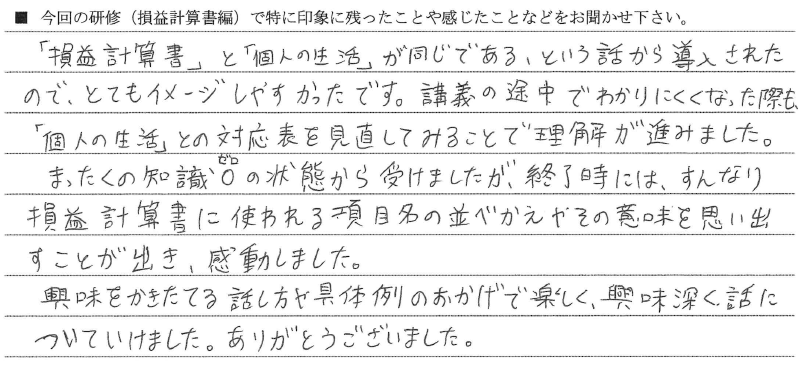 ■ 今回の研修（損益計算書編）で特に印象に残ったことや感じたことなどをお聞かせ下さい。
「損益計算書」と「個人の生活」が同じである、という話から導入された
ので、とてもイメージしやすかったです。講義の途中でわかりにくくなった際も、
「個人の生活」との対応表を見直してみることで理解が進みました。
まったくの知識0(ゼロ)の状態から受けましたが、終了時には、すんなり
損益計算書に使われる項目名の並べかえやその意味を思い出
すことが出き、感動しました。
興味をかきたてる話し方や具体例のおかげで楽しく、興味深く話に
ついていけました。ありがとうございました。